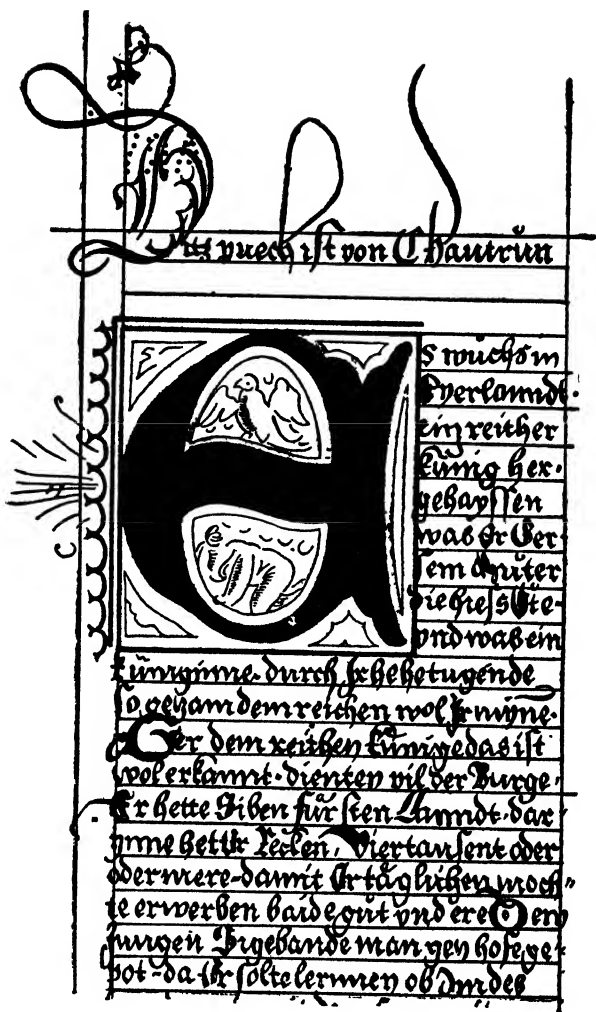 Ditz puech ist von Chautrůn
ES wůchs in
Eyerlanndt·
ein reicher
kůnig her·
gehayssen
was Er Ger·
sein můter
die hiess Ůte·
vnd was ein
küniginne· durch Ir hehe tugende
so gezam dem reichen wol Ir mÿnne·
Ger dem reichen künige das ist
wol erkannt· dienten vil der Burge·
Er hette Siben fürsten Lanndt· dar
ynne hett Er Recken, Viertausent oder
oder mere· damit Er täglichen moch„
te erwerben baide gůt vnd ere Dem
jungen Sigebande man gen hofe ge·
pot· da Er solte lernnen ob Im des